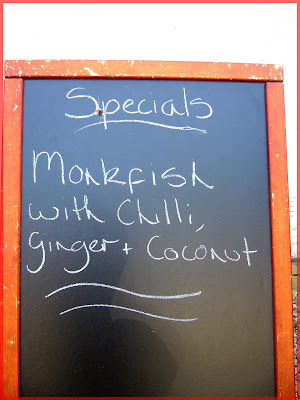 Specials
Monkfish
with Chilli,
Ginger + Coconut